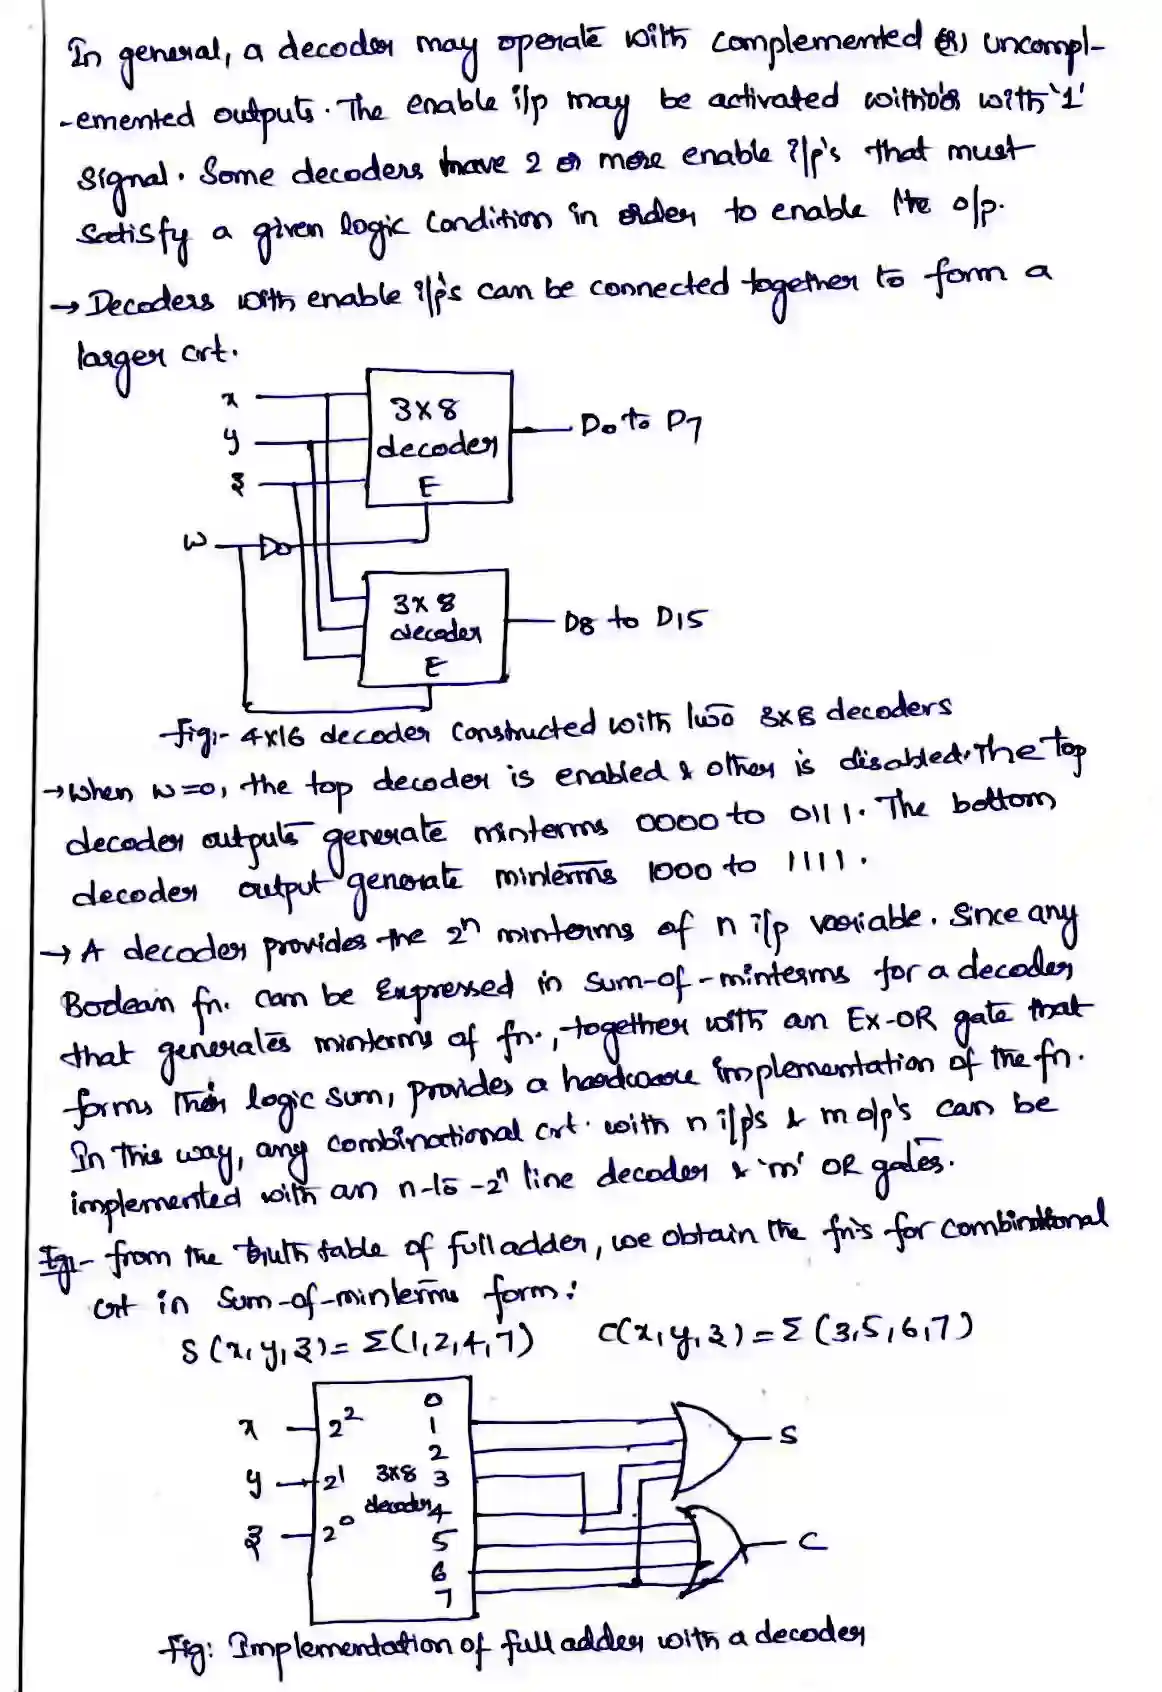 In general, a decoder may operate with complemented (or) uncompl-
-emented outputs. The enable i/p may be activated with '0' or with '1'
signal. Some decoders have 2 or more enable i/p's that must
satisfy a given logic condition in order to enable the o/p.
→ Decoders with enable i/p's can be connected together to form a
larger crt.
x
y
z
w
3x8
decoder
E
D0 to D7
3x8
decoder
E
D8 to D15
Fig:- 4x16 decoder constructed with two 3x8 decoders
→ When w=0, the top decoder is enabled & other is disabled. The top
decoder outputs generate minterms 0000 to 0111. The bottom
decoder output generate minterms 1000 to 1111.
→ A decoder provides the 2ⁿ minterms of n i/p variable. Since any
Boolean fn. can be Expressed in sum-of-minterms for a decoder
that generates minterms of fn., together with an Ex-OR gate that
forms their logic sum, provides a hardware implementation of the fn.
In this way, any combinational crt. with n i/p's & m o/p's can be
implemented with an n-to-2ⁿ line decoder & 'm' OR gates.
Eg:- from the truth table of full adder, we obtain the fn's for combinational
crt in Sum-of-minterms form:
S(x,y,z)= Σ(1,2,4,7) C(x,y,z)=Σ(3,5,6,7)
x
y
z
2²
2¹
2⁰
3x8
decoder
0
1
2
3
4
5
6
7
S
C
Fig: Implementation of full adder with a decoder